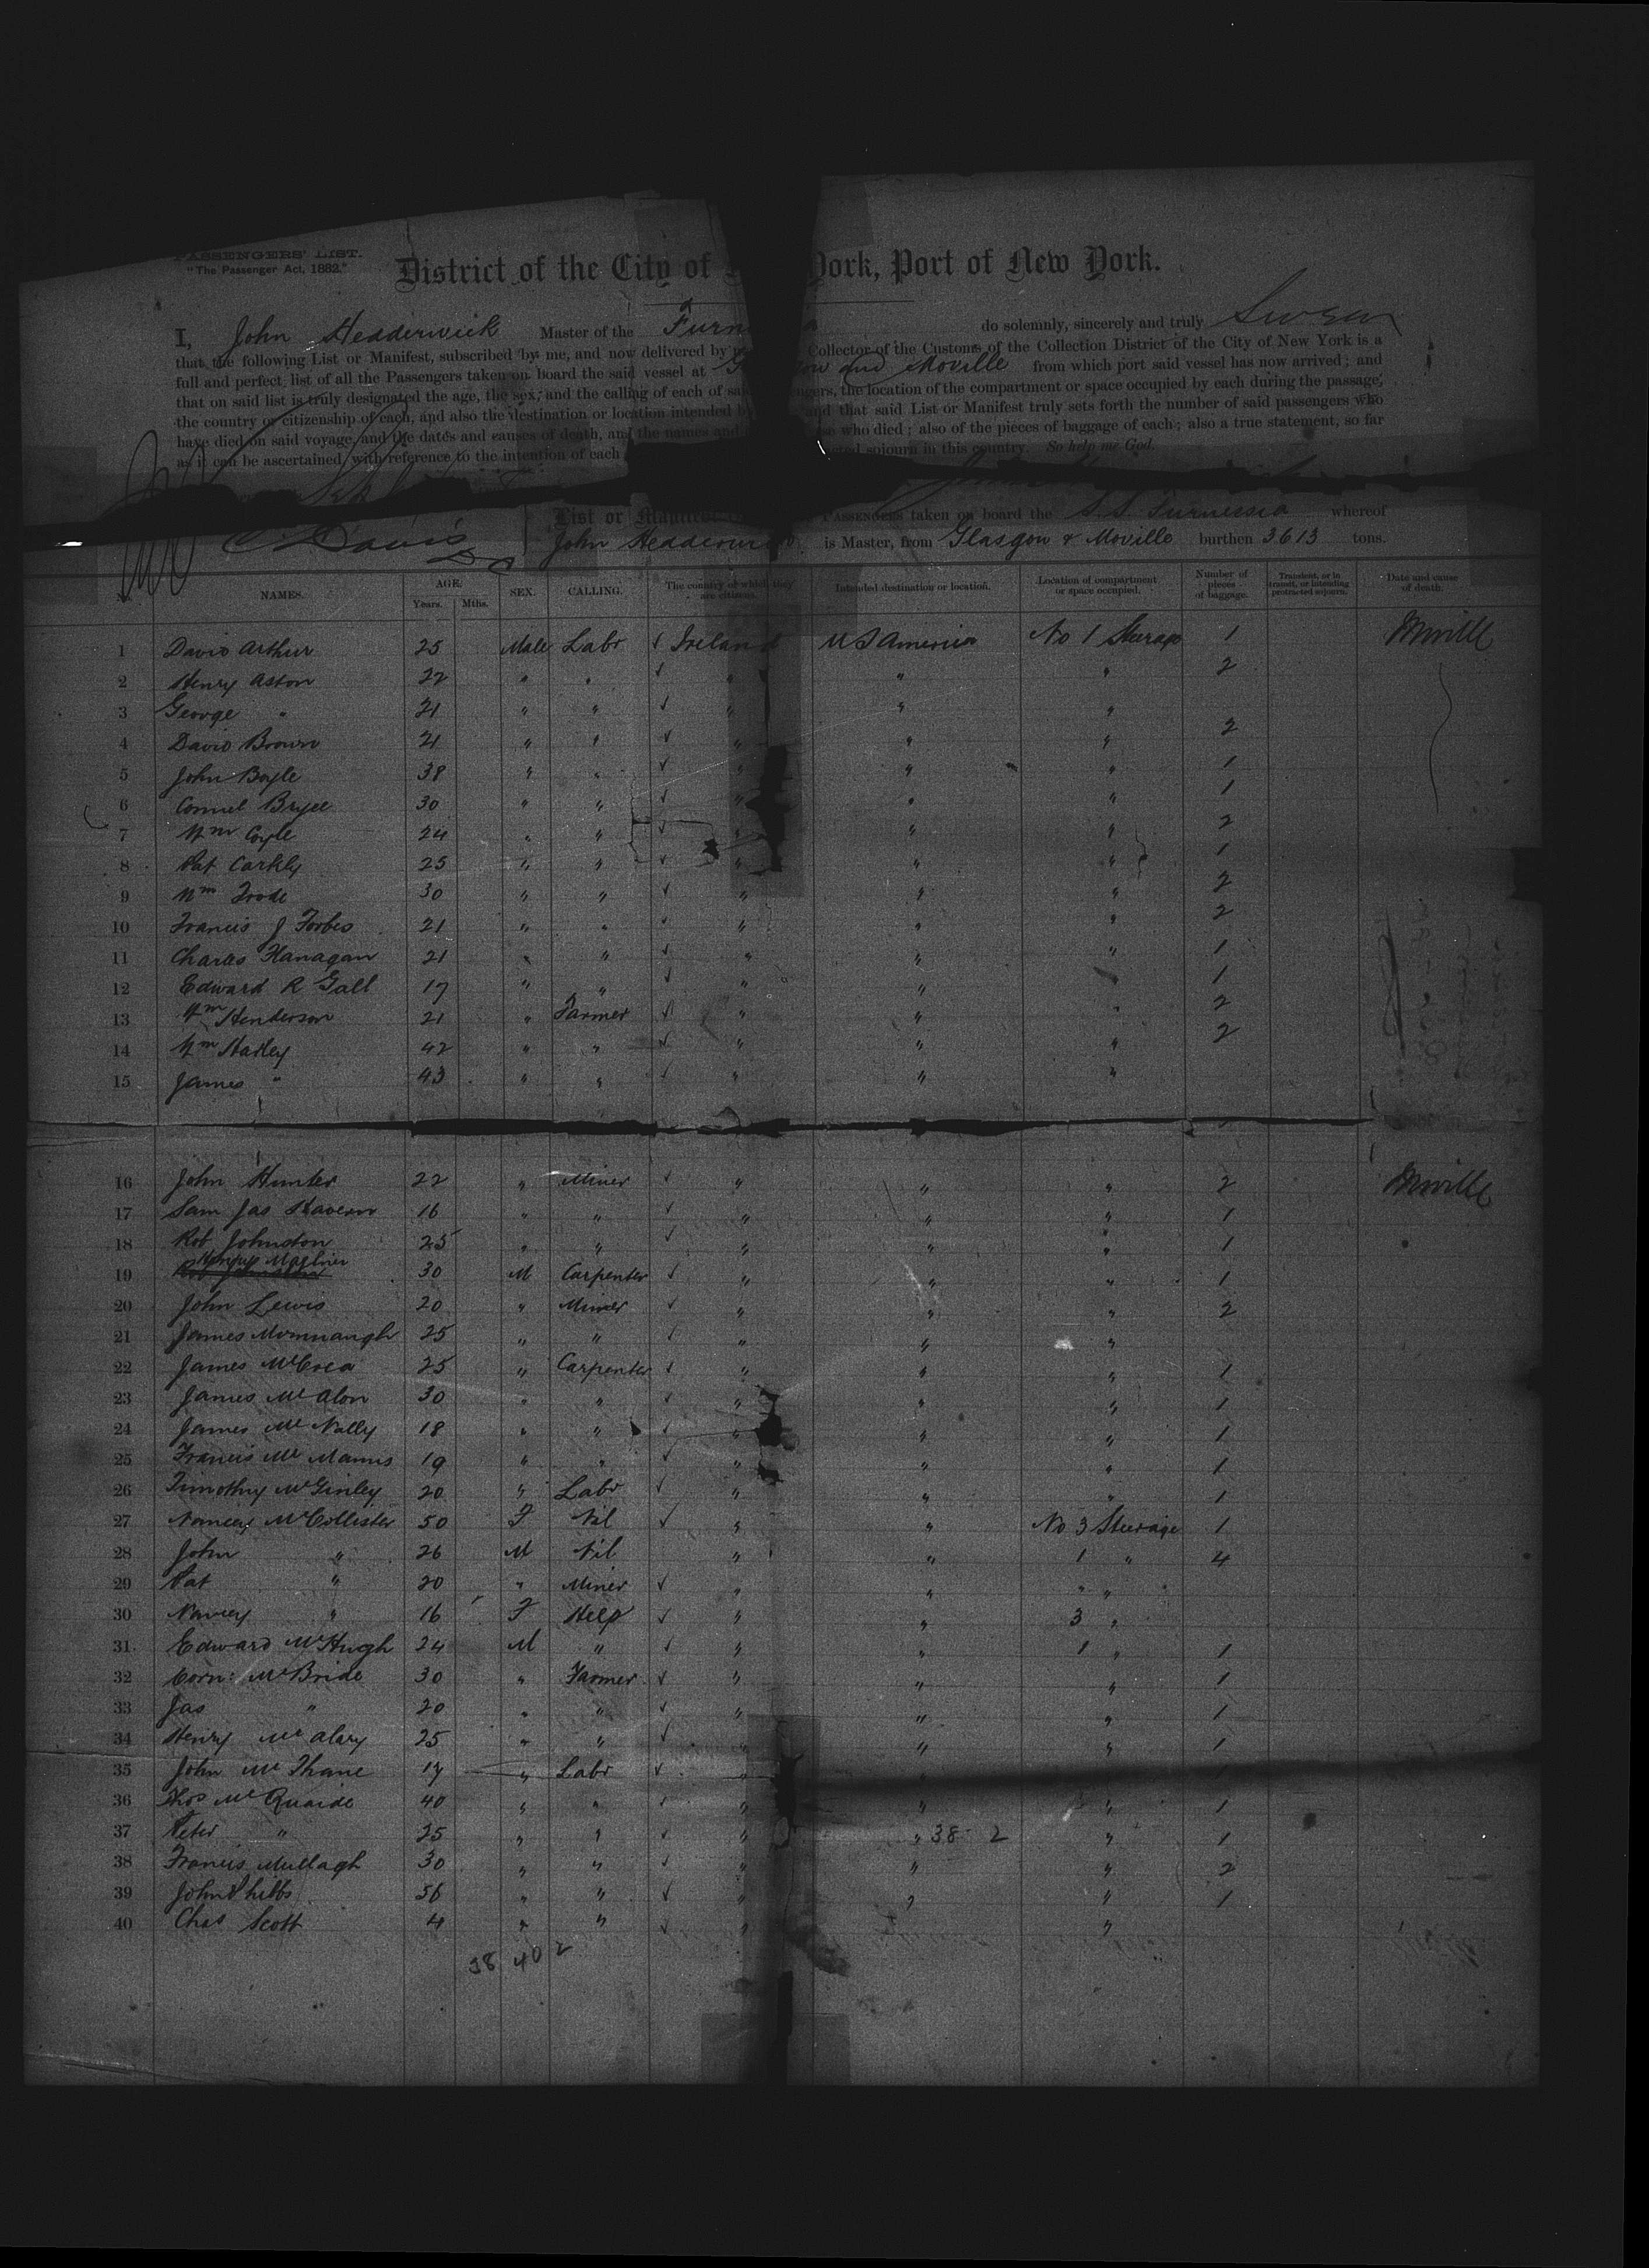 PASSENGERS' LIST.
"The Passenger Act, 1882."
District of the City of York, Port of New York.
I, John Hedderwick Master of the Furn a do solemnly, sincerely and truly Swear
that the following List or Manifest, subscribed by me, and now delivered by Collector of the Customs of the Collection District of the City of New York is a
full and perfect list of all the Passengers taken on board the said vessel at and Moville from which port said vessel has now arrived; and
that on said list is truly designated the age, the sex, and the calling of each of said engers, the location of the compartment or space occupied by each during the passage,
the country or citizenship of each, and also the destination or location intended by and that said List or Manifest truly sets forth the number of said passengers who
have died on said voyage, and the dates and causes of death, and the names and who died; also of the pieces of baggage of each; also a true statement, so far
as it can be ascertained, with reference to the intention of each sojourn in this country. So help me God.
List or Manifest PASSENGERS taken on board the S.S. Furnessia whereof
C Davis John Hedderwick is Master, from Glasgow & Moville burthen 3613 tons.
No. NAMES. AGE. Years. Mths. SEX. CALLING. The country of which they are citizens. Intended destination or location. Location of compartment or space occupied. Number of pieces of baggage. Transient, or in transit, or intending protracted sojourn. Date and cause of death.
1 David Arthur 25 Male Labr ✓ Ireland U S America No 1 Steerage 1 Moville
2 Henry Aston 22 " " ✓ " " " 2
3 George " 21 " " ✓ " " "
4 David Brown 21 " " ✓ " " " 2
5 John Boyle 38 " " ✓ " " " 1
6 Bryce 30 " " ✓ " " " 1
7 Wm Coyle 24 " " ✓ " " " 2
8 Pat Carkly 25 " " ✓ " " " 1
9 Wm Frode 30 " " ✓ " " " 2
10 Francis J Forbes 21 " " ✓ " " " 2
11 Charles Flanagan 21 " " ✓ " " " 1
12 Edward R Gall 17 " " ✓ " " " 1
13 Wm Henderson 21 " Farmer ✓ " " " 2
14 Wm Harley 42 " " ✓ " " " 2
15 James " 43 " " ✓ " " "
16 John Hunter 22 " Miner ✓ " " " 2 Moville
17 Sam Jas 16 " " ✓ " " " 1
18 Rob Johnston 25 " " ✓ " " " 1
19 30 M Carpenter ✓ " " " 1
20 John Lewis 20 " Miner ✓ " " " 2
21 James 25 " " ✓ " " "
22 James McCrea 25 " Carpenter ✓ " " " 1
23 James Mc Alon 30 " " ✓ " " " 1
24 James Mc Nally 18 " " ✓ " " " 1
25 Francis Mc Manus 19 " " ✓ " " " 1
26 Timothy McGinley 20 " Labr ✓ " " " 1
27 Nancy McCollister 50 F Nil ✓ " " No 3 Steerage 1
28 John " 26 M Nil " " 1 " 4
29 Pat " 20 " Miner ✓ " " " "
30 Nancy " 16 F Help ✓ " " 3 "
31 Edward McHugh 24 M " ✓ " " 1 " 1
32 Corn: McBride 30 " Farmer ✓ " " " 1
33 Jas " 20 " " ✓ " " " 1
34 Henry Mc Alary 25 " " ✓ " " " 1
35 John Mc Thane 17 " Labr ✓ " " " 1
36 Thos Mc Quaide 40 " " ✓ " " " 1
37 Peter " 25 " " ✓ " " 38 2 " 1
38 Francis Mullagh 30 " " ✓ " " " 2
39 John Phibbs 56 " " ✓ " " " 1
40 Chas Scott 4 " " ✓ " "
38 40 2